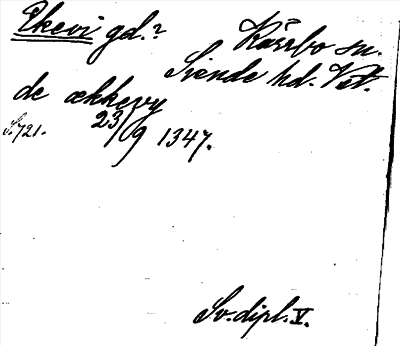 Ekevi gd.? Kärrbo sn.
Siende hd. Vst.
de ækkevy
S. 721. 23/9 1347.
Sv. dipl. V.